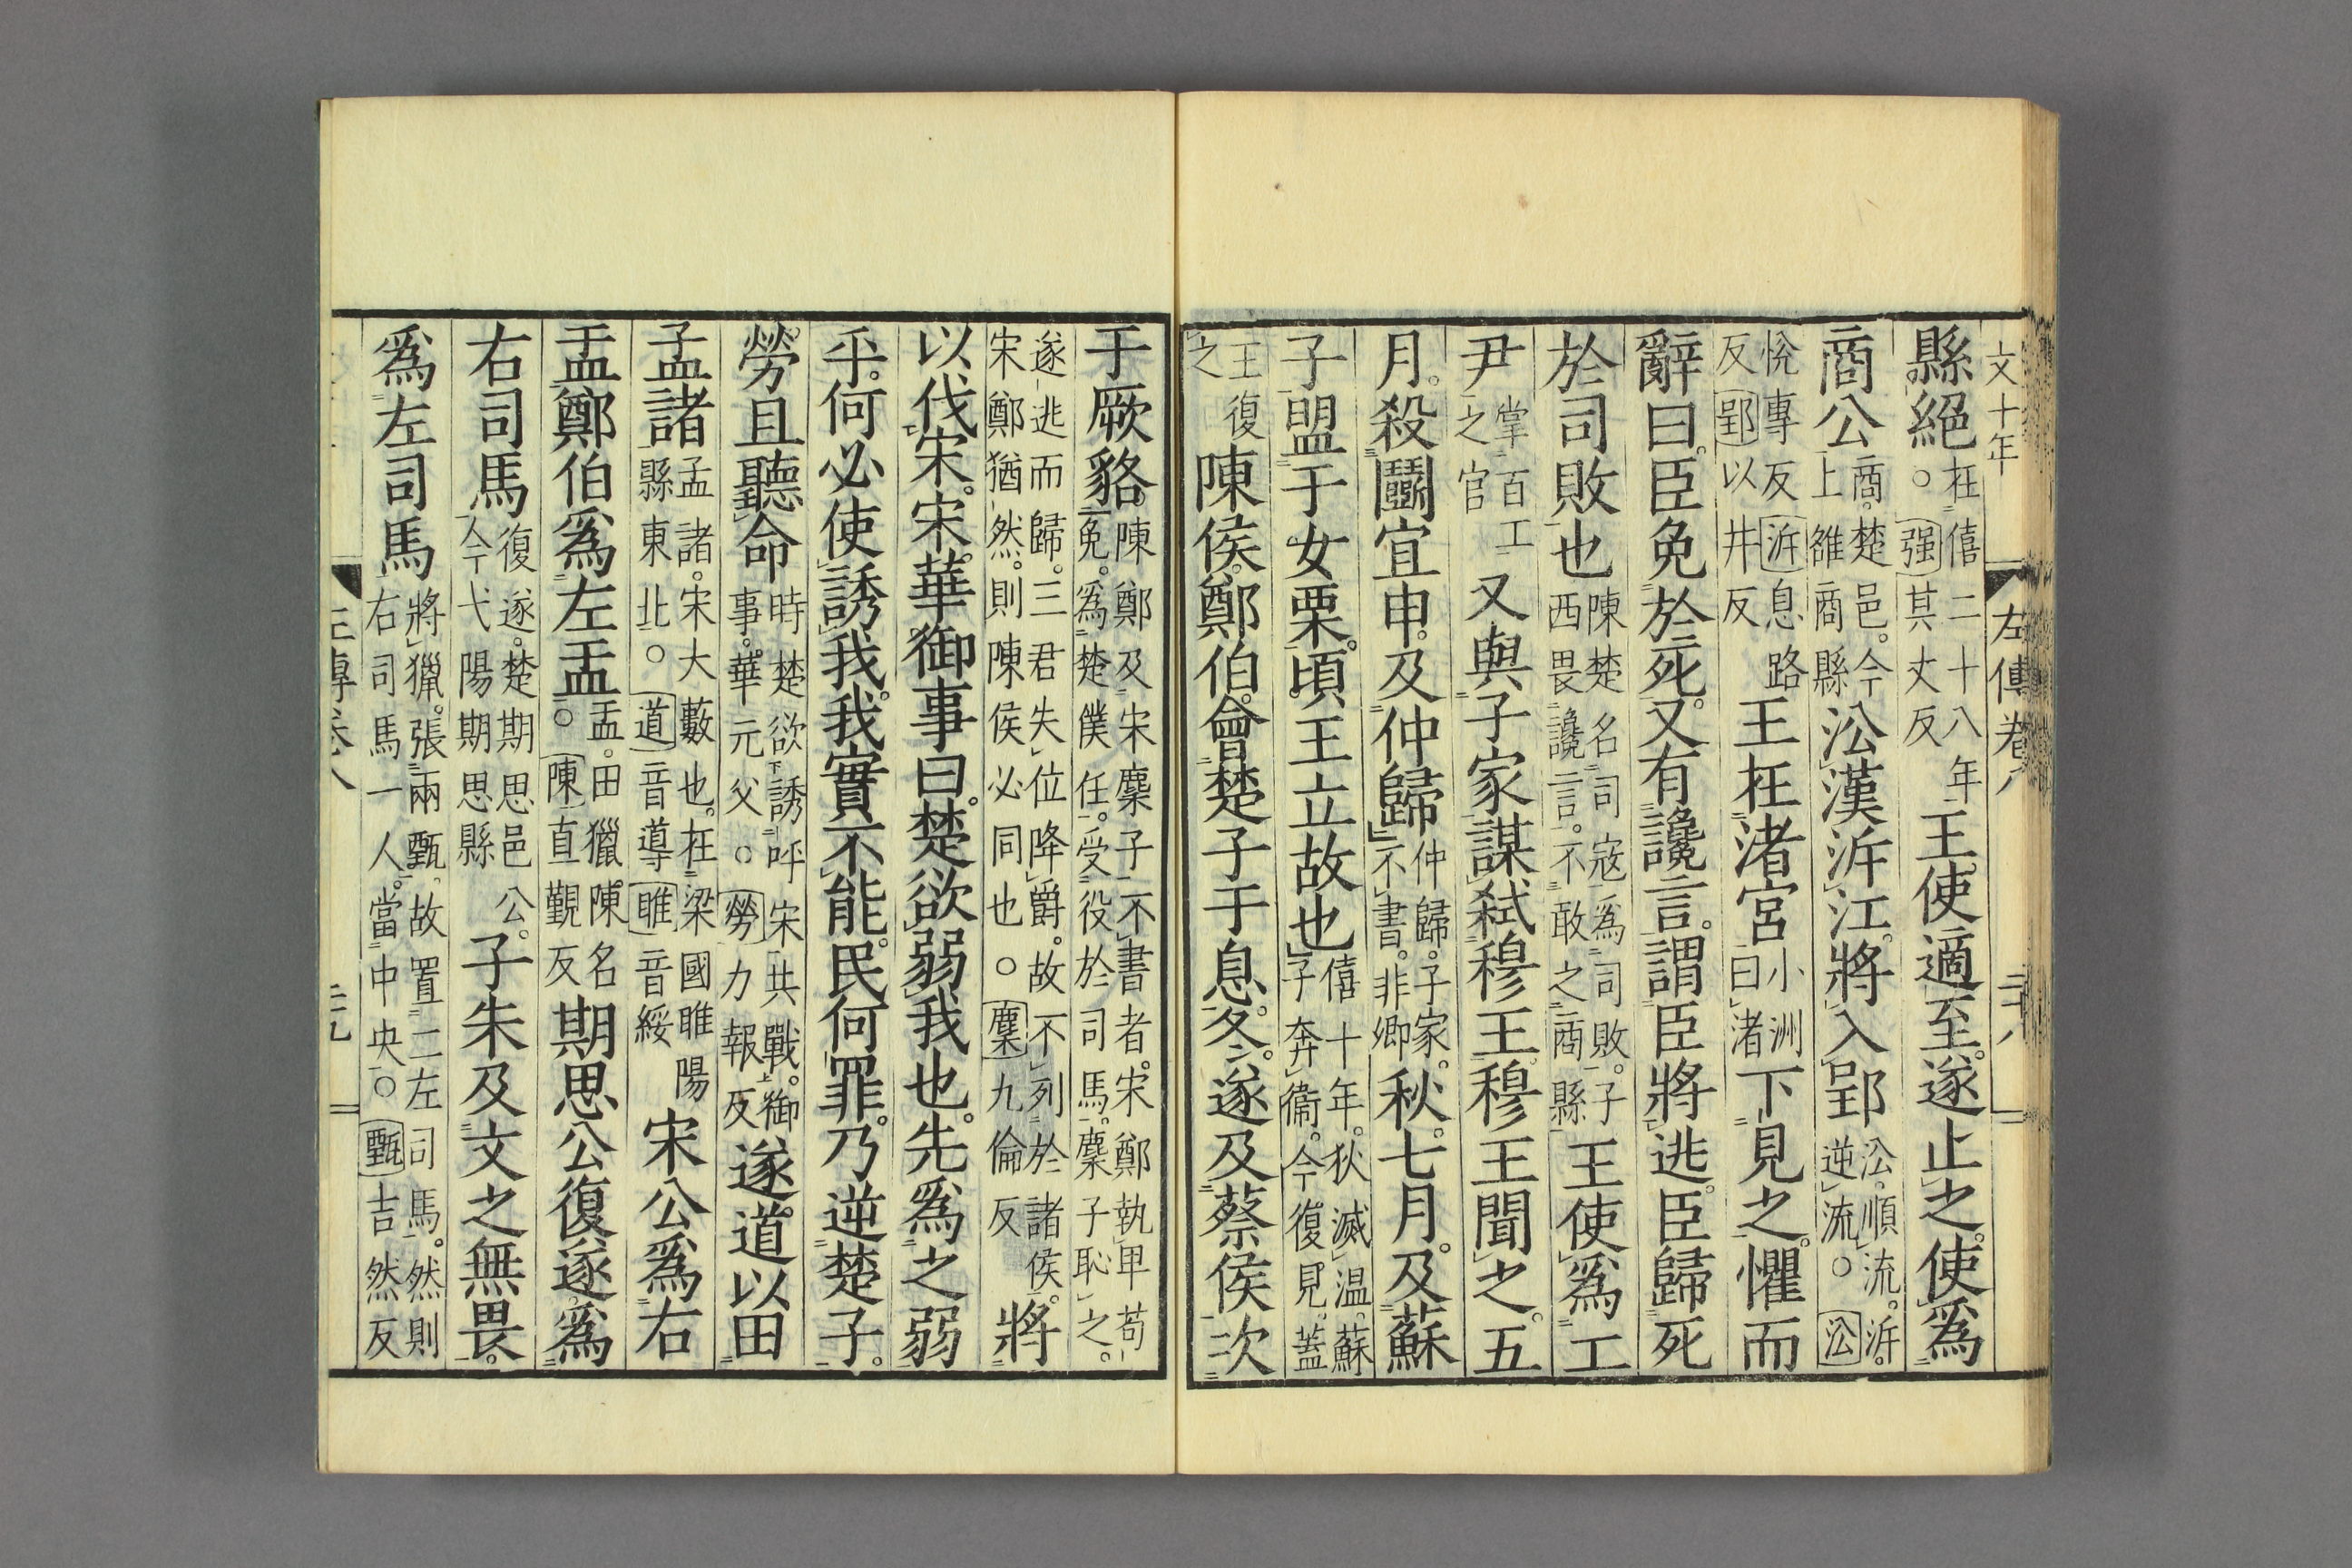 文十年 左傳卷八 二十八
縣絕在僖二十八年○强其丈反王使適至。遂止之。使爲
商公商。楚邑。今上雒商縣沿漢泝江。將入郢沿。順流。泝。逆流。○沿
悅專反泝息路反郢以井反王在渚宮小洲曰渚下見之。懼而
辭曰。臣免於死。又有讒言。謂臣將逃。臣歸死
於司敗也陳楚名司寇爲司敗。子西畏讒言。不敢之商縣王使爲工
尹掌百工之官又與子家謀弒穆王。穆王聞之。五
月。殺鬬宜申。及仲歸仲歸。子家。不書。非卿秋。七月。及蘇
子盟于女栗。頃王立故也僖十年。狄滅温。蘇子奔衞。今復見。蓋
王復之陳侯。鄭伯。會楚子于息。冬。遂及蔡侯次
于厥貉。陳鄭及宋麇子不書者。宋鄭執卑苟免。爲楚僕任。受役於司馬。麇子恥之。
遂逃而歸。三君失位降爵。故不列於諸侯。宋鄭猶然。則陳侯必同也。○麇九倫反將
以伐宋。宋。華御事曰。楚欲弱我也。先爲之弱
乎。何必使誘我。我實不能。民何罪。乃逆楚子。
勞且聽命時楚欲誘呼宋共戰。御事。華元父。○勞力報反遂道以田
孟諸孟諸。宋大藪也。在梁國睢陽縣東北。○道音導睢音綏宋公爲右
盂鄭伯爲左盂盂。田獵陳名。○陳直覲反期思公復遂。爲
右司馬復遂。楚期思邑公。今弋陽期思縣子朱及文之無畏。
爲左司馬將獵。張兩甄。故置二左司馬。然則右司馬一人。當中央。○甄吉然反